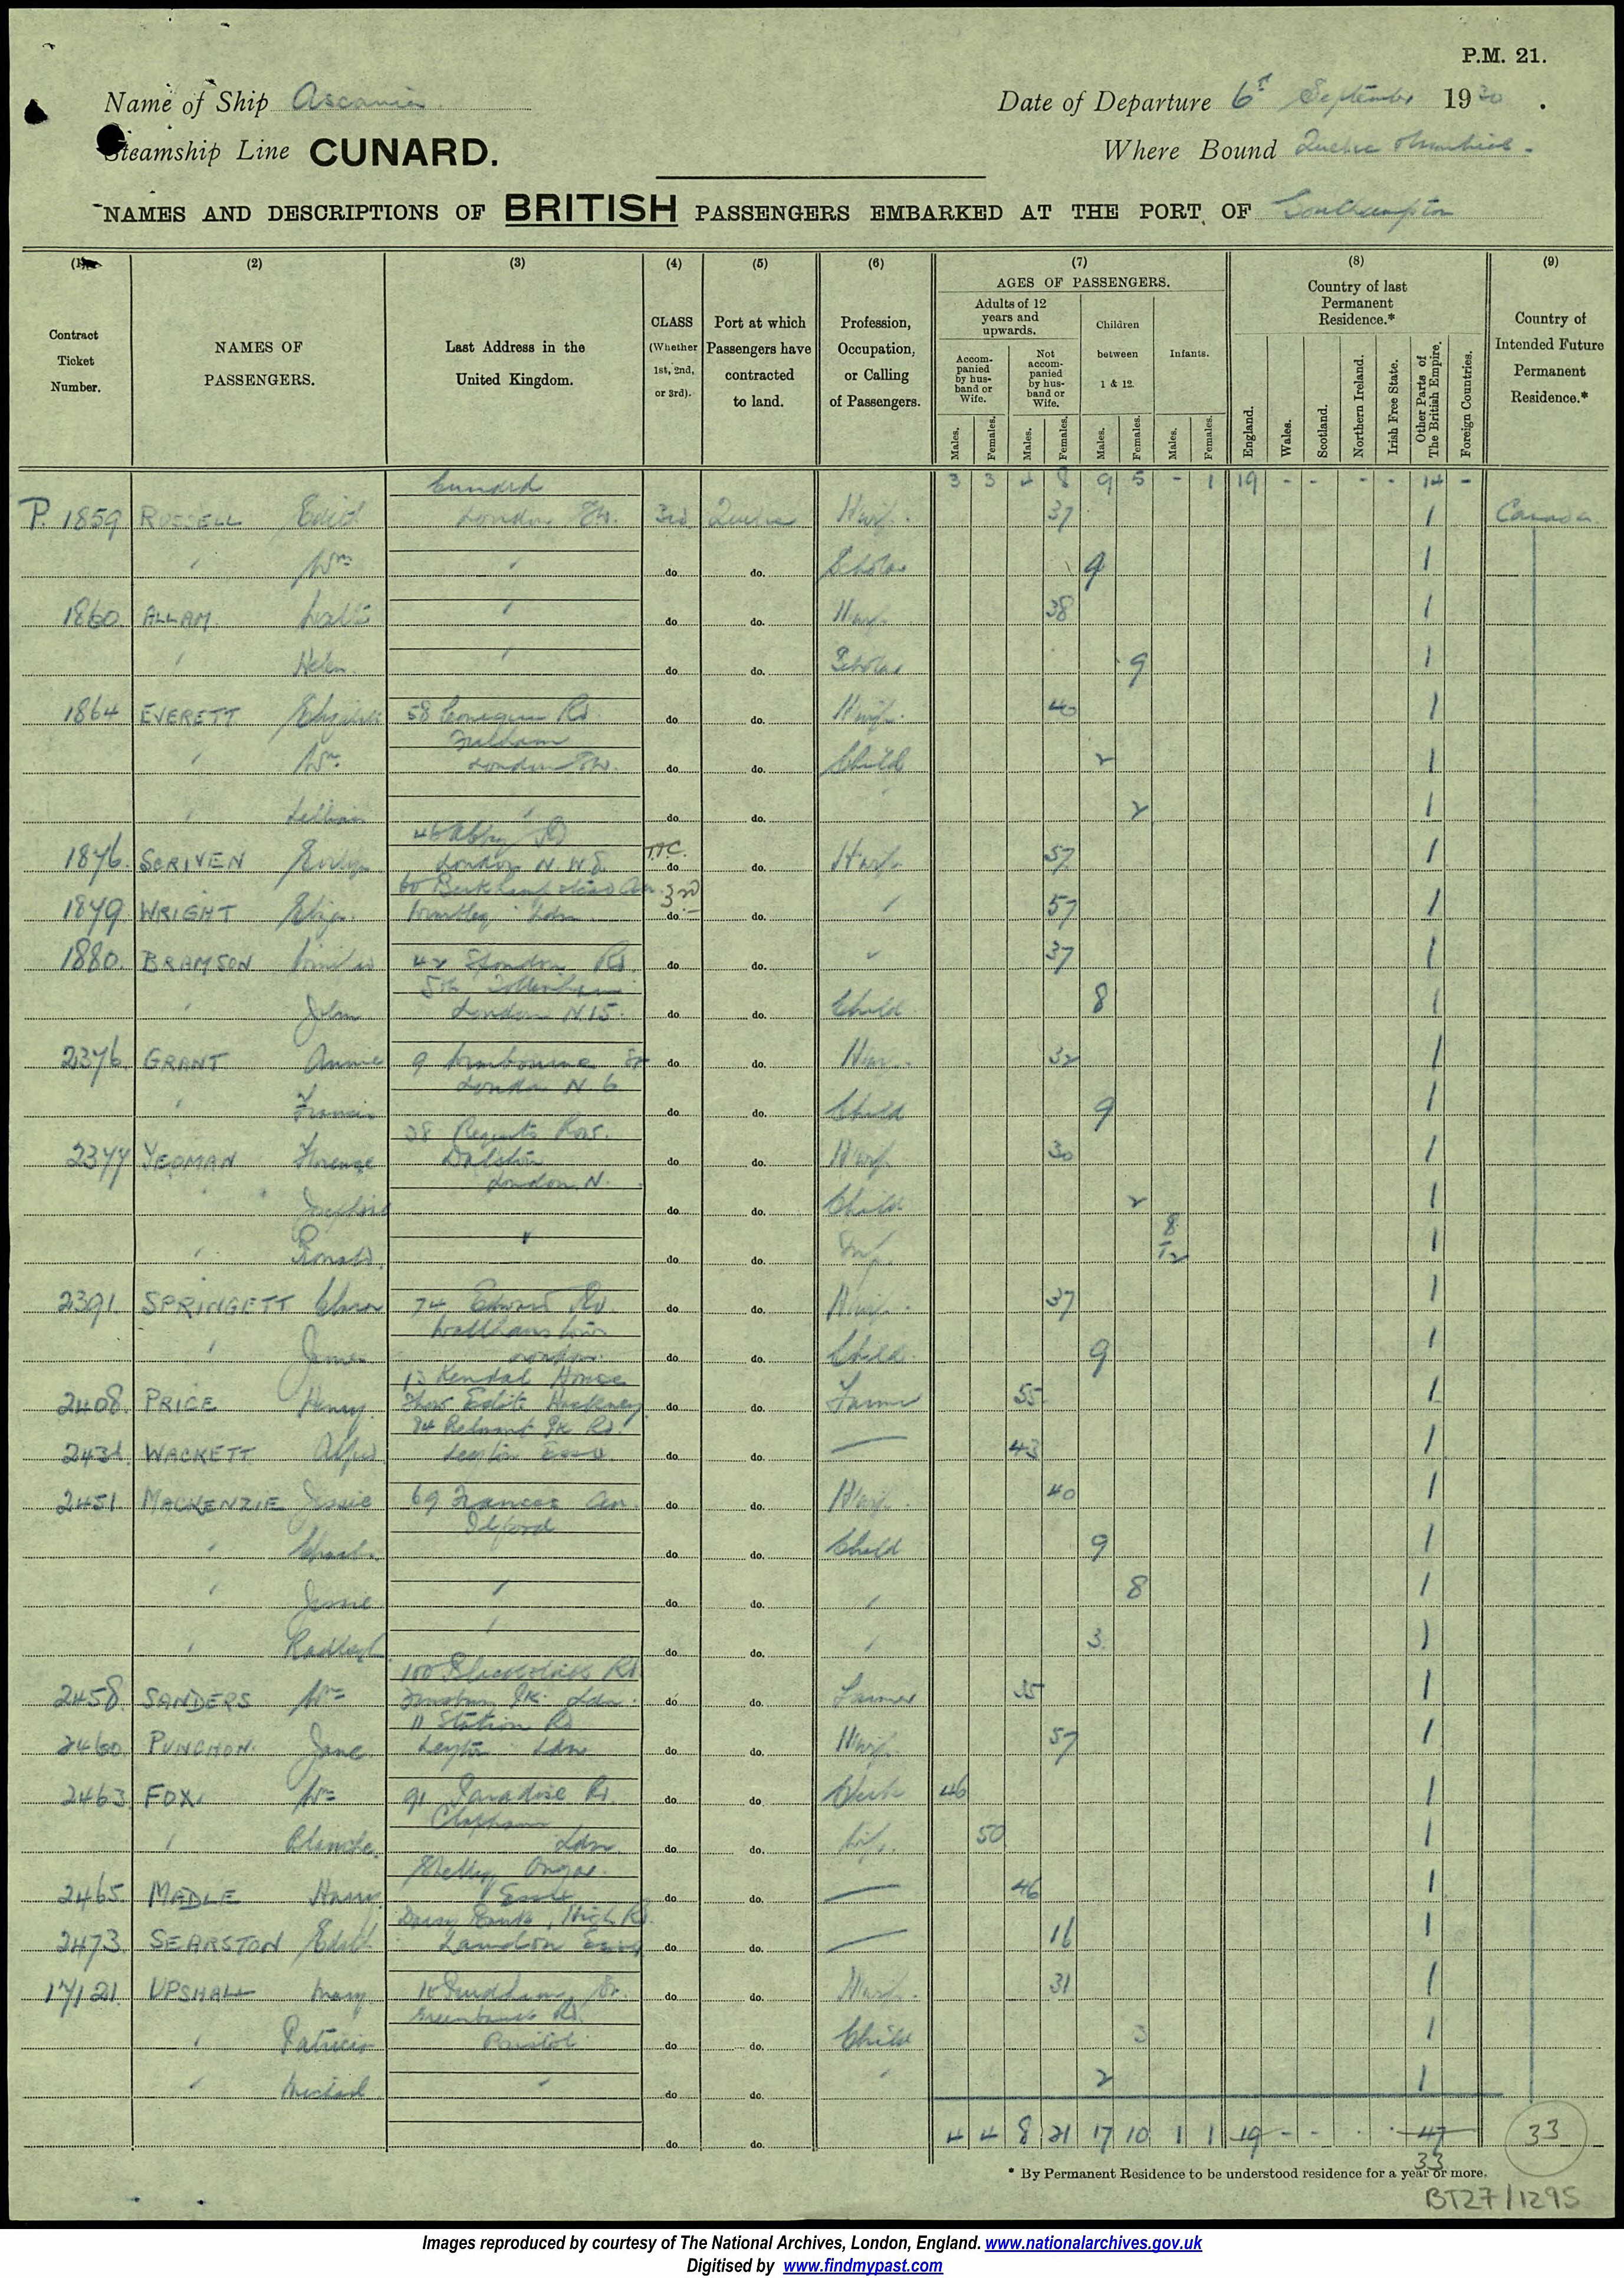 P.M. 21.
Name of Ship Ascania Date of Departure 6th September 1930.
Steamship Line CUNARD. Where Bound Quebec & Montreal
NAMES AND DESCRIPTIONS OF BRITISH PASSENGERS EMBARKED AT THE PORT OF Southampton
(1) (2) (3) (4) (5) (6) (7) (8) (9)
Contract Ticket Number.
NAMES OF PASSENGERS.
Last Address in the United Kingdom.
CLASS (Whether 1st, 2nd, or 3rd).
Port at which Passengers have contracted to land.
Profession, Occupation, or Calling of Passengers.
AGES OF PASSENGERS.
Adults of 12 years and upwards.
Accompanied by husband or Wife.
Not accompanied by husband or Wife.
Children between 1 & 12.
Infants.
Males. Females. Males. Females. Males. Females. Males. Females.
Country of last Permanent Residence.*
England. Wales. Scotland. Northern Ireland. Irish Free State. Other Parts of The British Empire. Foreign Countries.
Country of Intended Future Permanent Residence.*
Cunard 3 3 4 8 9 5 - 1 19 - - - - 14 -
P. 1859 RUSSELL Edith London 3rd Quebec Hwife. 37 1 Canada
" Wm " do do. Scholar 9 1
1860 ALLAM " do do. Hwife 38 1
" Helen " do do. Scholar 9 1
1864 EVERETT Elizabeth 58 Rd do do. Hwife 40 1
Fulham
" Wm London do do. Child 2 1
" Lillian " do do. 2 1
46 Abbey Rd
1876. SCRIVEN Evelyn London N.W.8 do do. Hwife 57 1
60 Berkhampstead Av. 3rd
1879 WRIGHT Eliza. Wembley Ldn do do. " 57 1
1880. BRAMSON 42 Rd. do do. " 37 1
Sth Tottenham
" John London N.15. do do. Child 8 1
2376. GRANT Annie 9 St do do. Hwife 32 1
London N.6
" Francis do do. Child 9 1
38 Regents Row.
2377 YEOMAN Florence Dalston do do. Hwife 30 1
London. N.
" Josephine do do. Child 2 1
" Ronald. " do do. Inf. 8/12 1
2391. SPRINGETT Clara 74 Edward Rd. do do. Hwife. 37 1
Walthamstow
" James London. do do. Child. 9 1
13 Kendal House
2408. PRICE Henry. Shore Estate Hackney. do do. Farmer 55 1
84 Belmont Pk Rd.
2431. WACKETT Alfred Leyton Essex. do do. — 43 1
2451 MACKENZIE Jessie 69 Frances Av. do do. Hwife. 40 1
Ilford
" Charles. do do. Child 9 1
" Jessie " do do. " 8 1
" " do do. " 3 1
100 Blackstock Rd
2458. SANDERS Wm Finsbury Pk. Ldn. do do. Farmer 35 1
11 Station Rd
2460 PUNCHON. Jane Leyton Ldn do do. Hwife. 57 1
2463. FOX. Wm 91 Paradise Rd. do do. Clerk 46 1
Clapham
" Blanche. Ldn. do do. Wife. 50 1
Shelley Ongar.
2465. MADLE Harry. Essex do do. — 46 1
Daisy Bank, High Rd.
2473. SEARSTON Edith Laindon Essex do do. — 16 1
17121. UPSHALL Mary 10 do do. Hwife. 31 1
Greenbank Rd.
" Patricia Bristol. do do. Child 3 1
" Michael " do do. " 2 1
do do. 4 4 8 21 17 10 1 1 19 - - 47 33
33
* By Permanent Residence to be understood residence for a year or more.
BT27/1295
Images reproduced by courtesy of The National Archives, London, England. www.nationalarchives.gov.uk
Digitised by www.findmypast.com